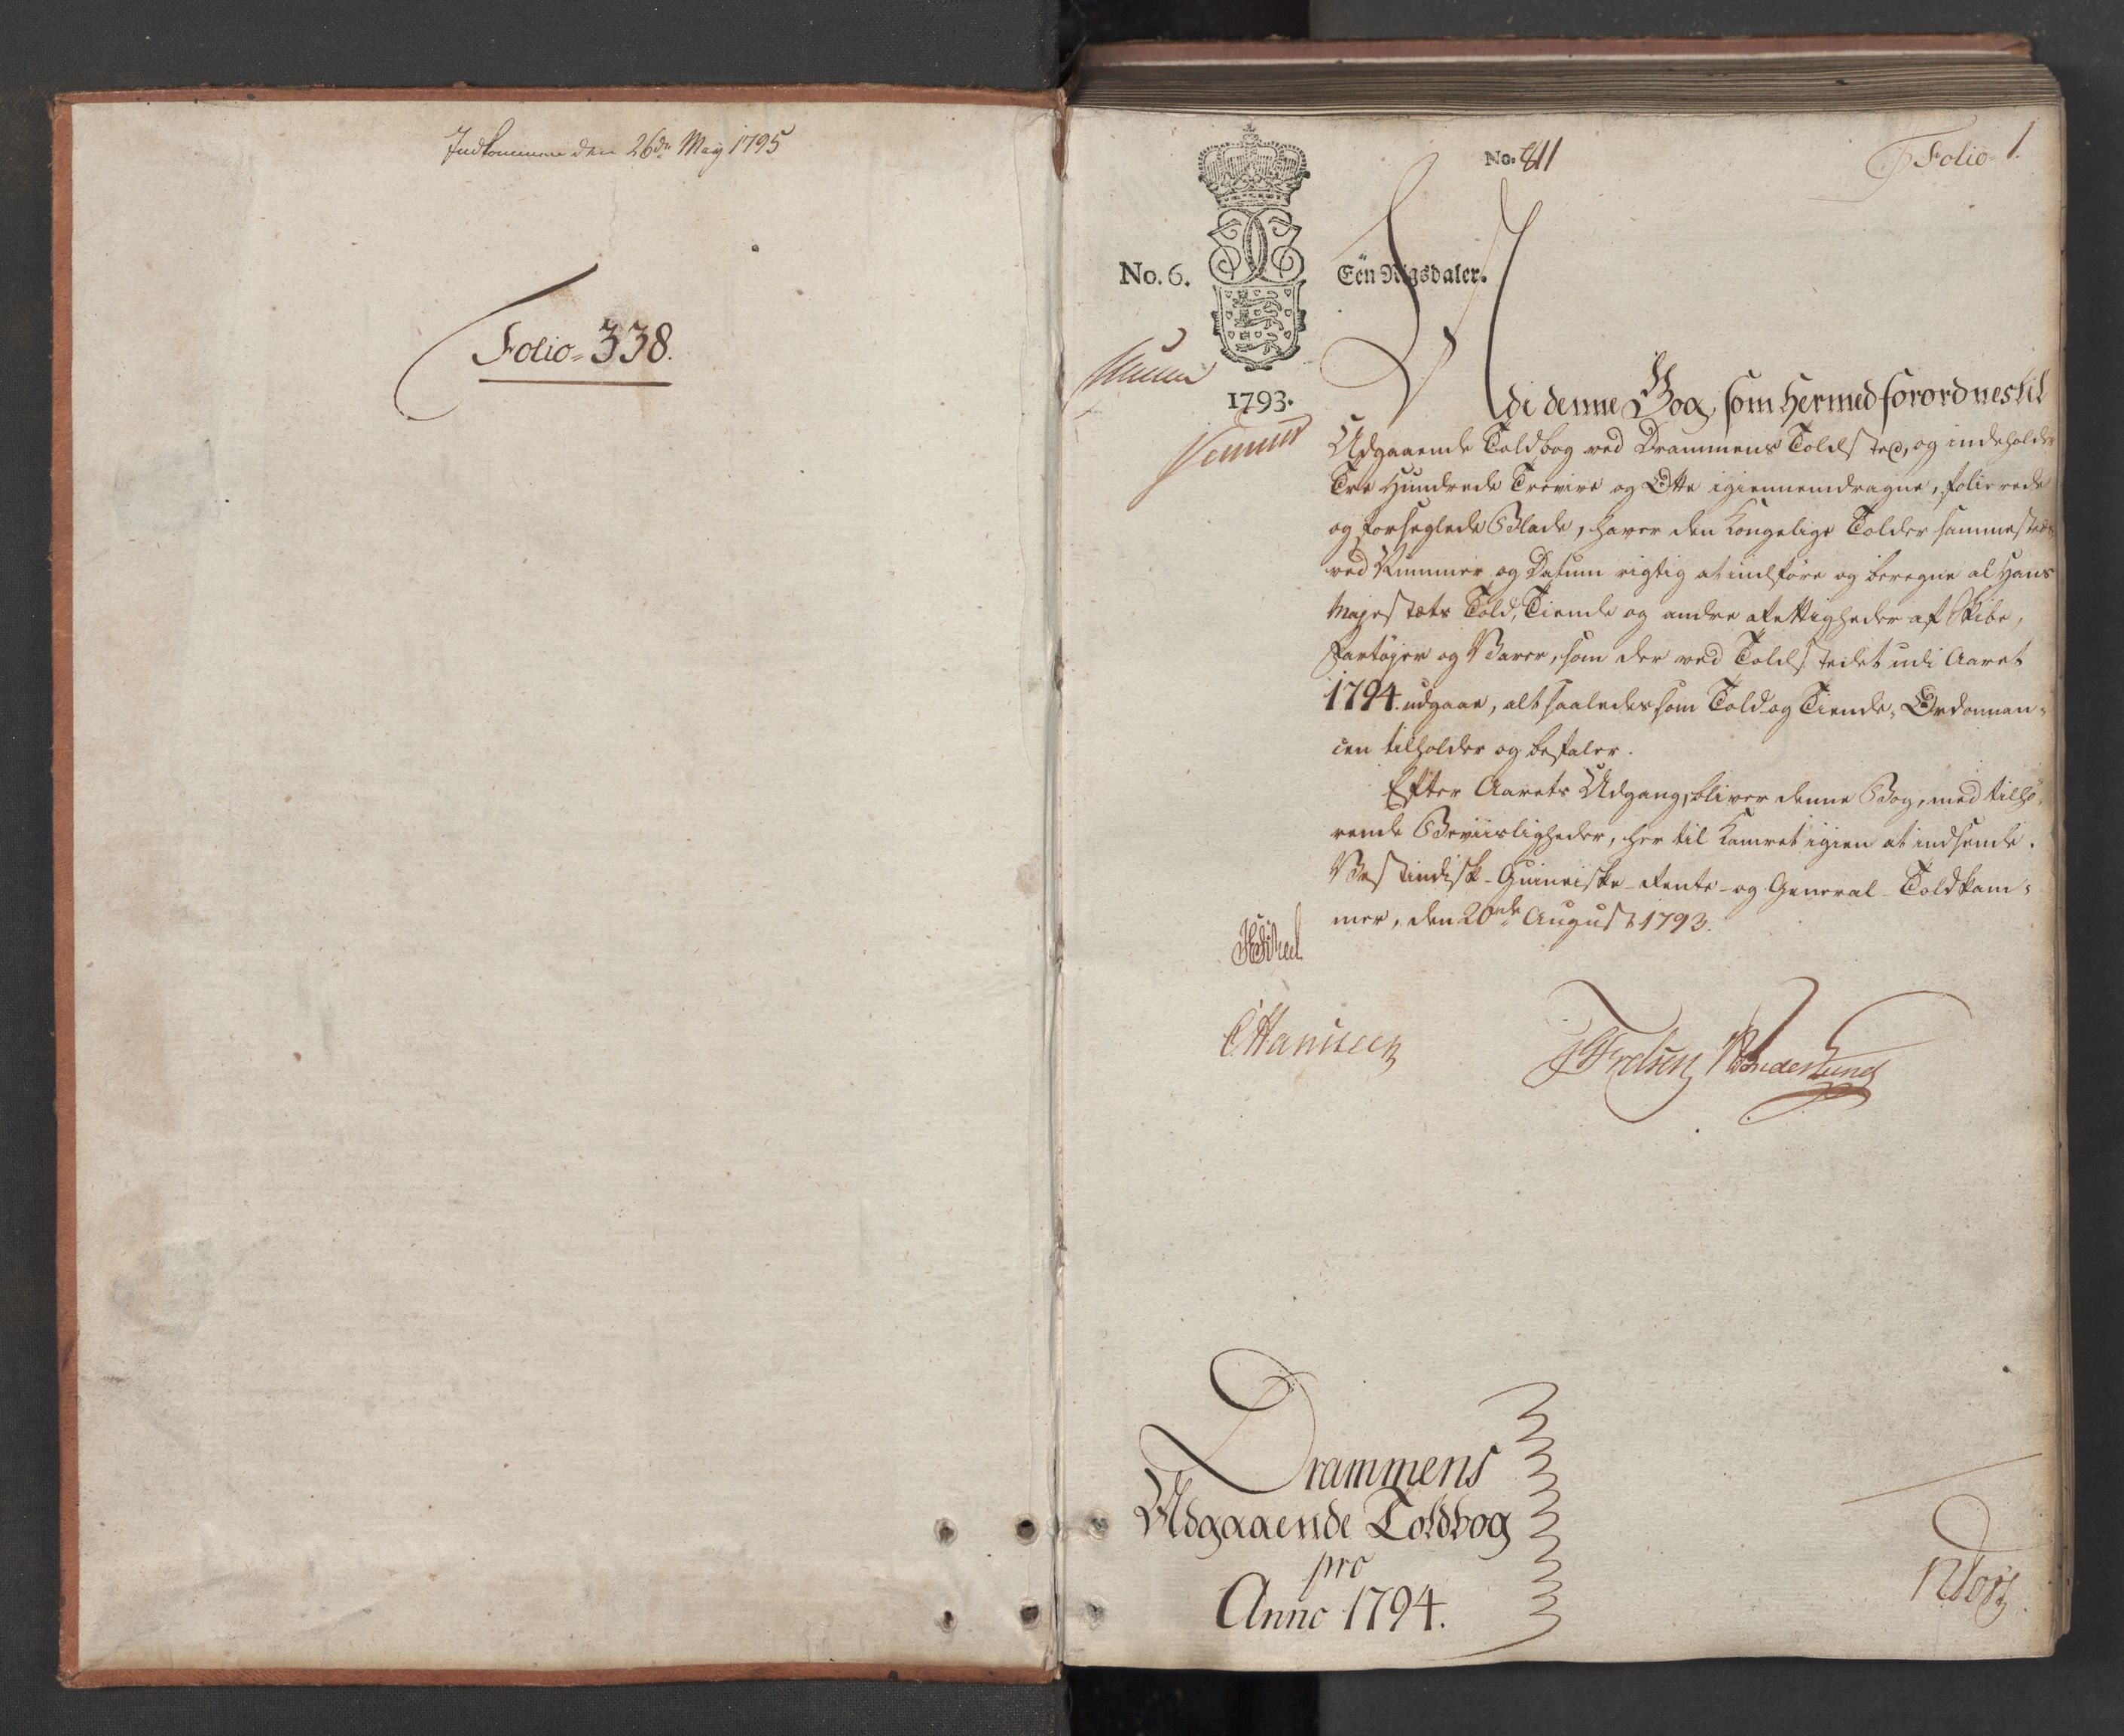 Indkommen den 26de May 1795
Folio 338.
No. 811
Folio 1.
No. 6.
Een Rigsdaler.
1793.
Udi denne Bog, som hermed forordnes til
Udgaaende Toldbog ved Drammens Toldsted, og indeholder
Tre Hundrede Tredive og Otte igiennemdragne, folierede
og forseglede Blade, haver den Kongelige Tolder sammesteds
ved Nummer og Datum rigtig at indføre og beregne al Hans
Majestæts Told, Tiende og andre Rettigheder af Skibe,
Fartøjer og Varer, som der ved Toldstedet udi Aaret
1794. udgaae, alt saaledes som Told og Tiende-Ordonnan-
cen tilholder og befaler.
Efter Aarets Udgang, bliver denne Bog, med tilhø-
rende Beviisligheder, her til Kamret igien at indsende.
Vestindisk-Guineiske-Rente- og General-Toldkam-
mer, den 20de August 1793.
Drammens
Udgaaende Toldbog
pro
Anno 1794.